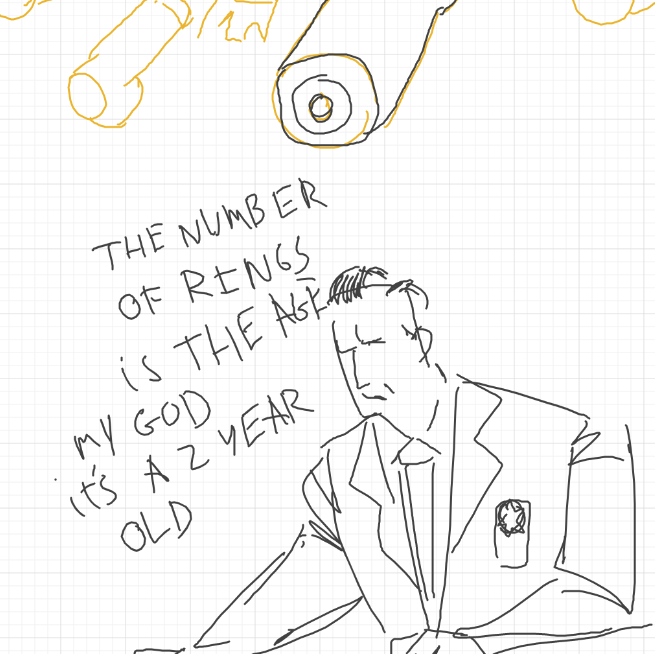 THE NUMBER
OF RINGS
iS THE AGE
MY GOD
it's A 2 YEAR
OLD